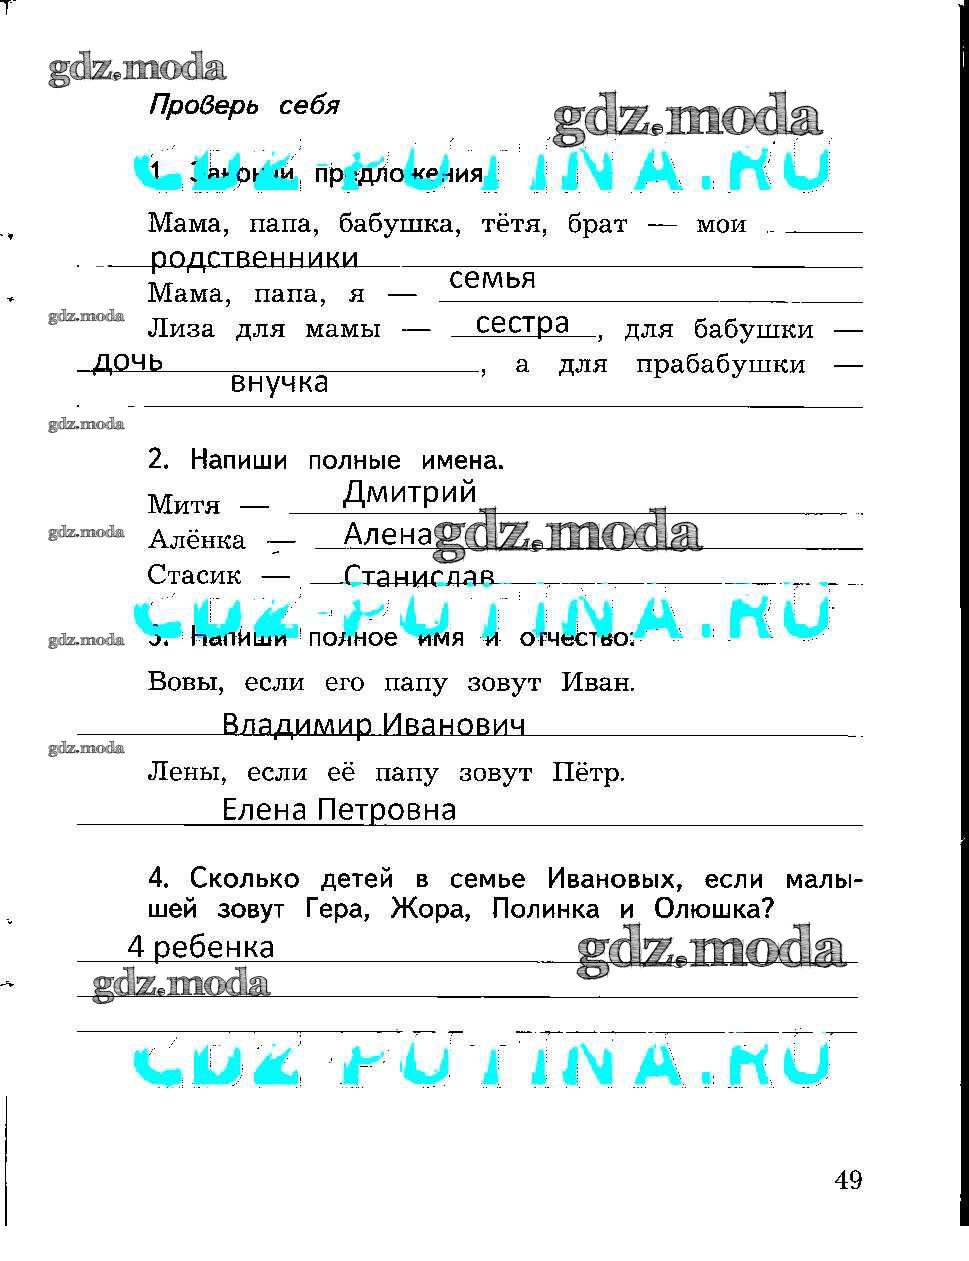 gdz.moda
Проверь себя
gdz.moda
1. Закончи предложения
GDZ-PUTINA.RU
Мама, папа, бабушка, тётя, брат — мои
родственники
Мама, папа, я — семья
gdz.moda
Лиза для мамы — сестра, для бабушки —
дочь, а для прабабушки —
внучка
gdz.moda
2. Напиши полные имена.
Митя — Дмитрий
gdz.moda
Алёнка — Алена
gdz.moda
Стасик — Станислав
GDZ-PUTINA.RU
gdz.moda
3. Напиши полное имя и отчество:
Вовы, если его папу зовут Иван.
Владимир Иванович
gdz.moda
Лены, если её папу зовут Пётр.
Елена Петровна
4. Сколько детей в семье Ивановых, если малы-
шей зовут Гера, Жора, Полинка и Олюшка?
4 ребенка
gdz.moda
gdz.moda
GDZ-PUTINA.RU
49